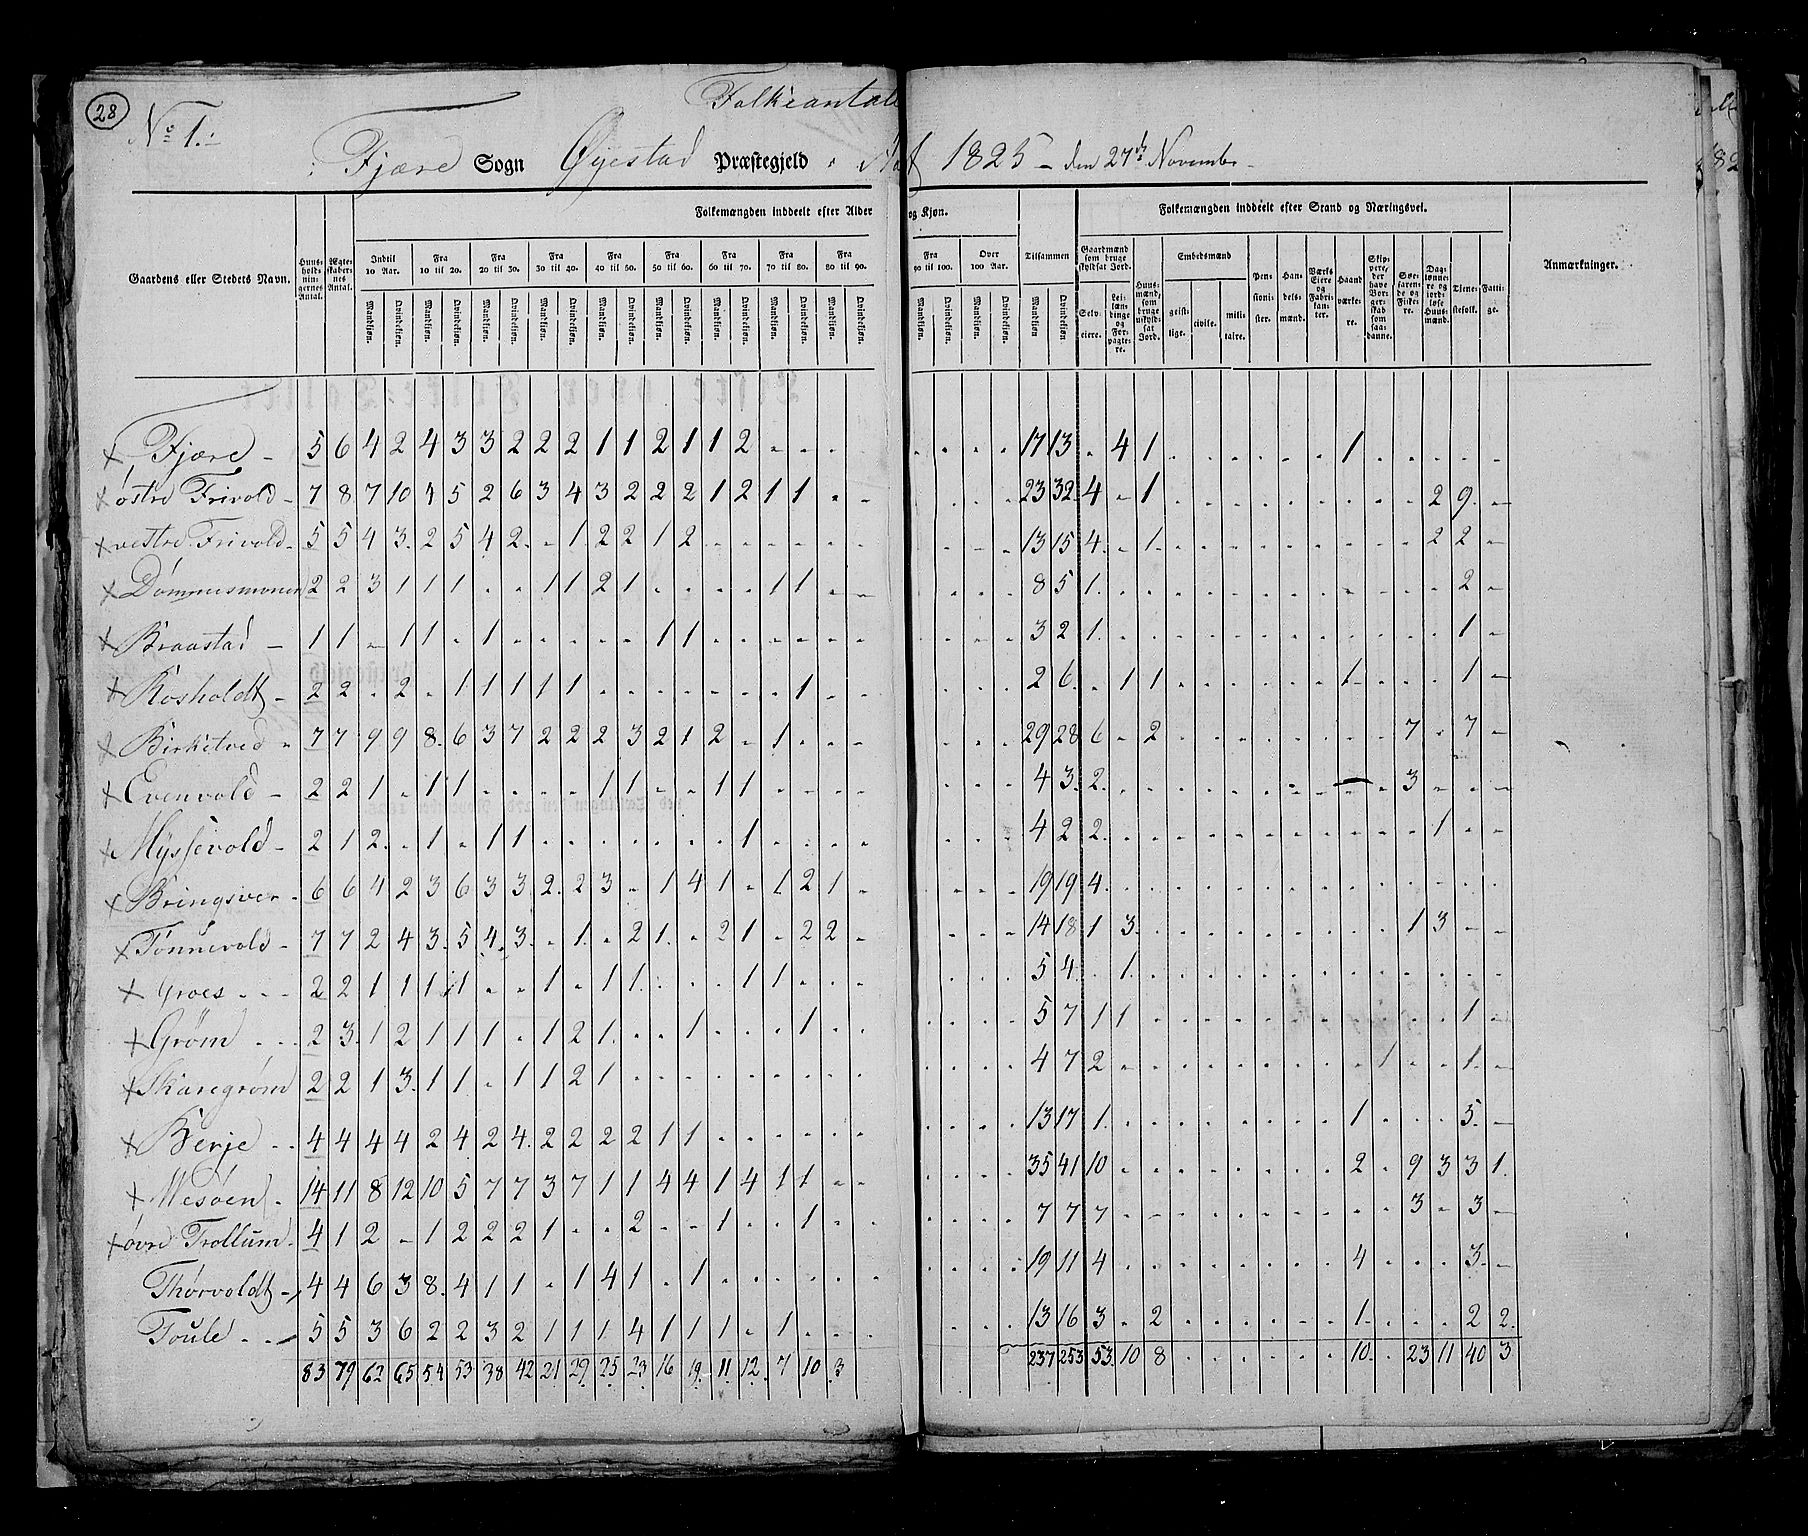 28
No 1.
Folkeantall
Fjære Sogn Øyestad Præstegjeld Aar 1825 – den 27de November
Folkemængden inddeelt efter Alder og Kjøn.
Folkemængden inddeelt efter Stand og Næringsvei.
Gaardens eller Stedets Navn.
Huusholdningernes Antal.
Ægteskabernes Antal.
Indtil 10 Aar. Fra 10 til 20. Fra 20 til 30. Fra 30 til 40. Fra 40 til 50. Fra 50 til 60. Fra 60 til 70. Fra 70 til 80. Fra 80 til 90. Fra 90 til 100. Over 100 Aar. Tilsammen
Mandkjøn. Qvindekjøn.
Gaardmænd som bruge skyldsat Jord. Selveiere. Leilændinge og Forpagtere. Huusmænd, som bruge uskyldsat Jord. Embedsmænd geistlige. civile. militaire. Pensionister. Handelsmænd. Værks Eiere og Fabrikanter. Haandværkere. Skippere, der have Borgerskab som saadanne. Søefarende og Fiskere. Daglønnere og jordløse Huusmænd. Tjenestefolk. Fattige.
Anmærkninger.
× Fjære – 5 6 4 2 4 3 3 2 2 2 1 1 2 1 1 2 17 13 . 4 1 1
× østre Frivold – 7 8 7 10 4 5 2 6 3 4 3 2 2 2 1 2 1 1 23 32 4 – 1 2 9
× vestre Frivold 5 5 4 3 2 5 4 2 – 1 2 2 1 2 13 15 4 – 1 2 2
× Dømmesmonen 2 2 3 1 1 1 . . 1 1 2 1 . . . . 1 1 8 5 1 2
× Braastad – 1 1 – 1 1 . 1 . . . . . 1 1 3 2 1 1
× Rosholdt – 2 2 . 2 . 1 1 1 1 1 . . . . . . . 1 2 6 . 1 1 1 1
× Birketved 7 7 9 9 8 6 3 7 2 2 2 3 2 1 2 . 1 29 28 6 . 2 7 . 7
× Evenvold – 2 2 1 . 1 1 . . . . 1 1 . . 1 1 4 3 2 3
× Myssevold – 2 1 2 . 1 . 1 1 . . . . . . . 1 4 2 2 1
× Bringsver – 6 6 4 2 3 6 3 3 2 2 3 . 1 4 1 . 1 2 1 19 19 4
× Tønnevold – 7 7 2 4 3 5 4 3 . 1 . 2 1 . 2 1 . 2 2 14 18 1 3 1 3
× Groes 2 2 1 1 1 1 . . 1 . 1 1 . . . 1 1 5 4 . 1
× Grøm 2 3 1 2 1 1 1 . 1 2 1 . . 1 . . . 1 5 7 1 1 1
× Skaregrøm 2 2 1 3 1 1 . 1 1 2 1 4 7 2 1 1
× Berje 4 4 4 4 2 4 2 4 2 2 2 2 1 1 13 17 1 1 5
× Mesøen – 14 11 8 12 10 5 7 7 3 7 1 1 4 4 1 4 1 1 35 41 10 2 . 9 3 3 1
× øvre Trollum 4 1 2 – 1 2 2 2 1 . . 2 . . 1 . . 1 7 7 7 3 . 3
Thørvoldt 4 4 6 3 8 4 1 1 . 1 4 1 . 1 19 11 4 4 3
Toule 5 5 3 6 2 2 3 2 1 1 1 4 1 1 1 . 1 13 16 3 . 2 1 2 2
83 79 62 65 54 53 38 42 21 29 25 23 16 19 11 12 7 10 3 237 253 53 10 8 10 . 23 11 40 3